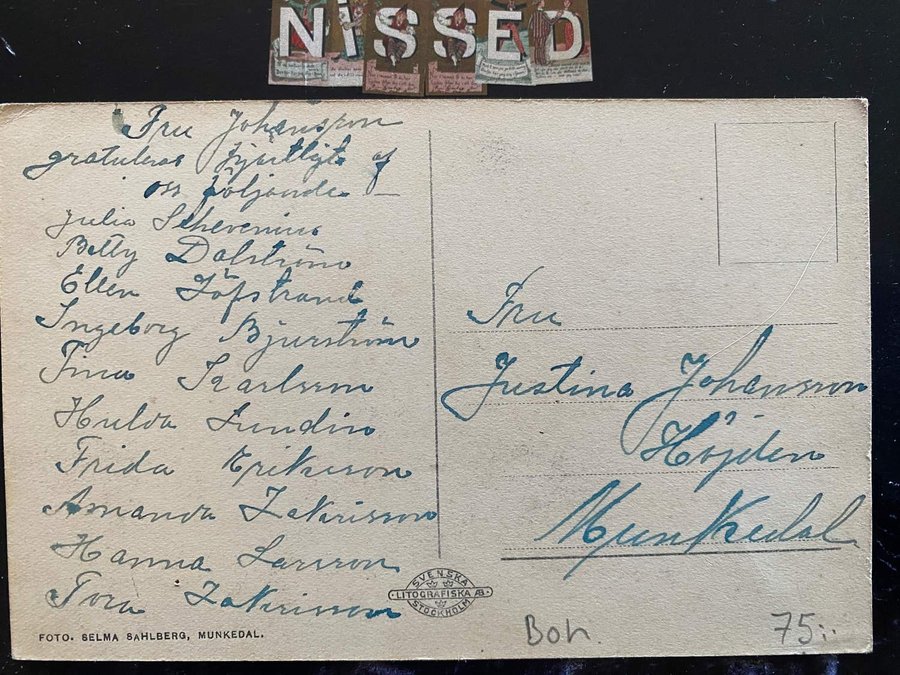 NISSED
Fru Johansson
gratuleras hjärtligt af
oss följande —
Julia Schevenius
Betty Dalström
Ellen Löfstrand
Ingeborg Bjurström
Tina Karlsson
Hulda Lundin
Frida Eriksson
Amanda Zakrisson
Hanna Larsson
Tora Zakrisson
FOTO. SELMA SAHLBERG, MUNKEDAL.
Fru
Justina Johansson
Höjden
Munkedal
SVENSKA
LITOGRAFISKA AB
STOCKHOLM
Boh.
75:-